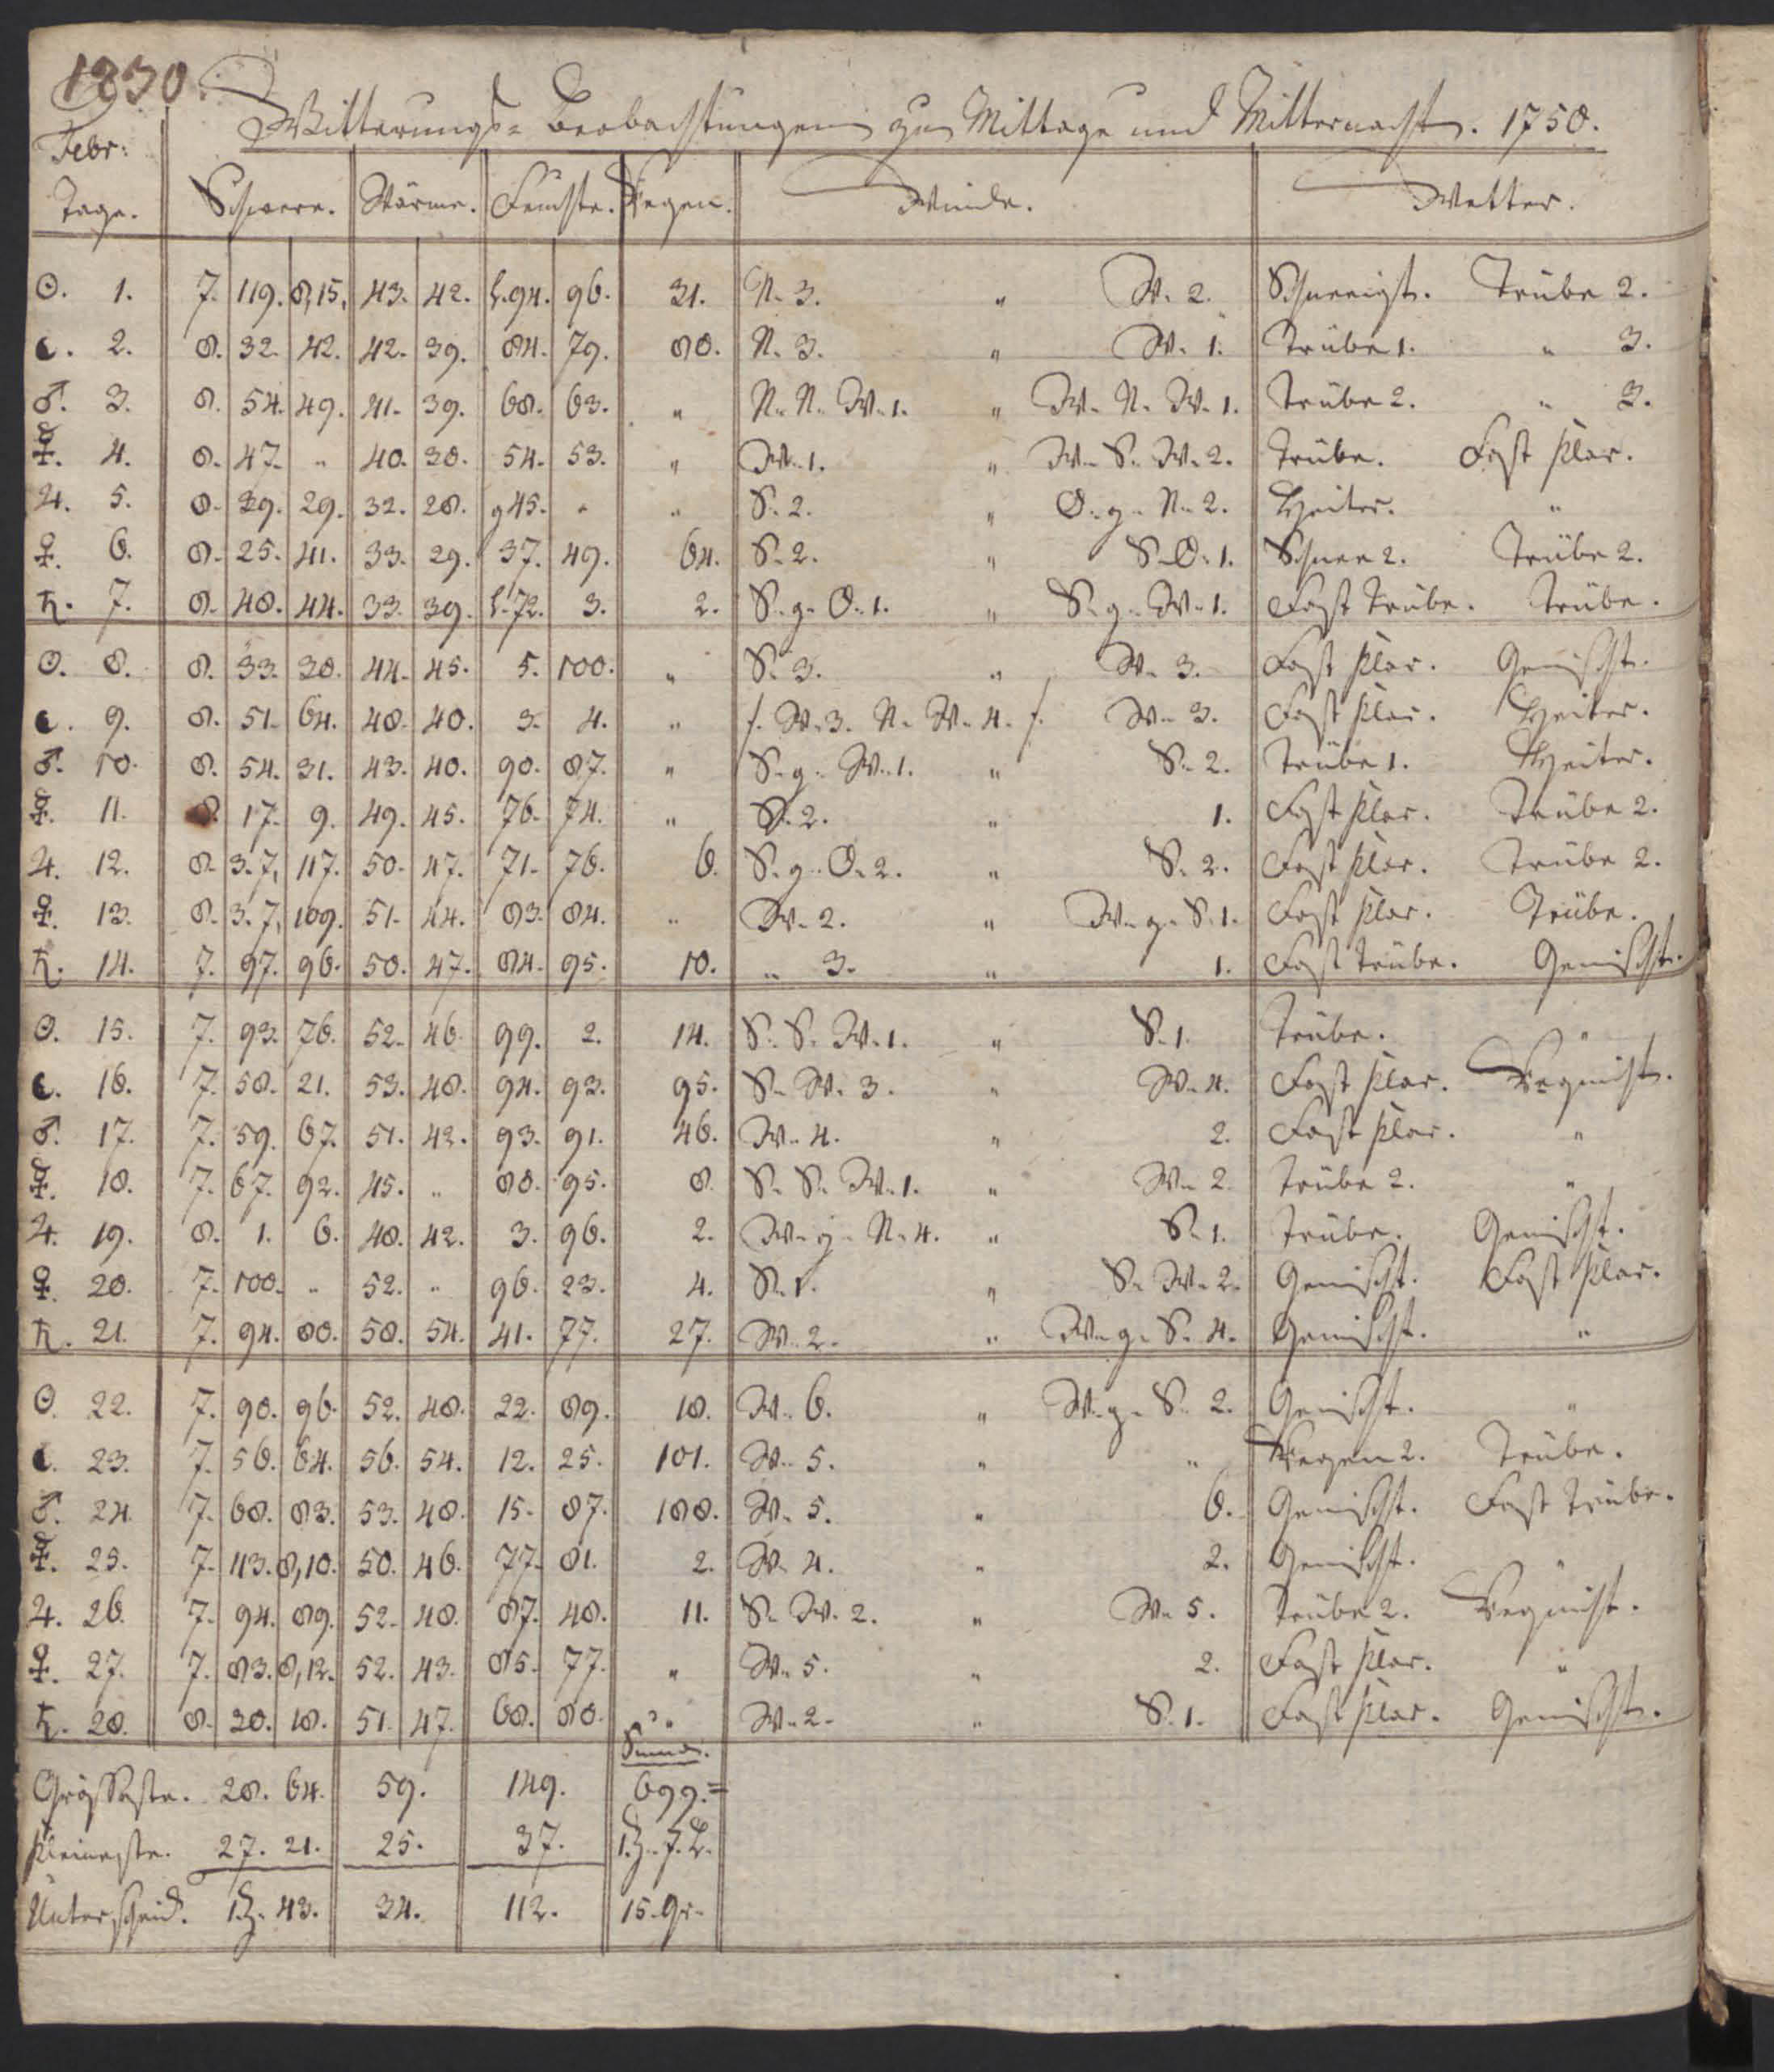 1830.
Witterungs= Beobachtungen zu Mittage und Mitternacht. 1750.
Febr:
Tage. Schwere. Wärme. Feuchte. Regen. Winde. Wetter.
☉. 1. 7. 119. 8,15. 43. 42. 94. 96. 31. N. 3. " W. 2. Schneeigt. Trübe 2.
☾. 2. 8. 32. 42. 42. 39. 84. 79. 88. N. 3. " W. 1. Trübe 1. " 3.
♂. 3. 8. 54. 49. 41. 39. 68. 63. " N. N. W. 1. " W. N. W. 1. Trübe 2. " 3.
☿. 4. 8. 47. " 40. 38. 54. 53. " W. 1. " W. S. W. 2. Trübe. Fast klar.
♃. 5. 8. 39. 29. 32. 28. g 45. " " S. 2. " O. g. N. 2. Heiter. "
♀. 6. 8. 25. 41. 33. 29. 37. 49. 64. S. 2. " S. O. 1. Schnee 2. Trübe 2.
♄. 7. 8. 48. 44. 33. 39. 72. 3. 2. S. g. O. 1. " S. g. W. 1. Fast Trübe. Trübe.
☉. 8. 8. 33. 38. 44. 45. 5. 100. " S. 3. " W. 3. Fast klar. Gemischt.
☾. 9. 8. 51. 64. 48. 40. 3. 4. " f. W. 3. N. W. 4. f. W. 3. Fast klar. Heiter.
♂. 10. 8. 54. 31. 43. 40. 90. 87. " S. g. W. 1. " S. 2. Trübe 1. Heiter.
☿. 11. 8. 17. 9. 49. 45. 76. 74. " S. 2. " 1. Fast klar. Trübe 2.
♃. 12. 8. 3. 7, 117. 50. 47. 71. 76. 6. S. g. O. 2. " S. 2. Fast klar. Trübe 2.
♀. 13. 8. 3. 7, 109. 51. 44. 83. 84. " W. 2. " W. g. S. 1. Fast klar. Trübe.
♄. 14. 7. 97. 96. 50. 47. 84. 95. 10. " 3. " 1. Fast trübe. Gemischt.
☉. 15. 7. 93. 76. 52. 46. 99. 2. 14. S. S. W. 1. " S. 1. Trübe. "
☾. 16. 7. 58. 21. 53. 48. 94. 93. 95. S. W. 3. " W. 4. Fast klar. Regnicht.
♂. 17. 7. 59. 67. 51. 42. 93. 91. 46. W. 4. " 2. Fast klar. "
☿. 18. 7. 67. 92. 45. " 88. 95. 8. S. S. W. 1. " W. 2. Trübe 2. "
♃. 19. 8. 1. 6. 48. 42. 3. 96. 2. W. g. N. 4. " S. 1. Trübe. Gemischt.
♀. 20. 7. 100. " 52. " 96. 23. 4. S. 1. " S. W. 2. Gemischt. Fast klar.
♄. 21. 7. 94. 80. 58. 54. 41. 77. 27. W. 2. " W. g. S. 4. Gemischt. "
☉. 22. 7. 90. 96. 52. 48. 22. 89. 18. W. 6. " W. g. S. 2. Gemischt. "
☾. 23. 7. 56. 64. 56. 54. 12. 25. 101. W. 5. " " Regen 2. Trübe.
♂. 24. 7. 68. 83. 53. 48. 15. 87. 188. W. 5. " 6. Gemischt. Fast trübe.
☿. 25. 7. 113. 8,10. 50. 46. 77. 81. 2. W. 4. " 2. Gemischt. "
♃. 26. 7. 94. 89. 52. 48. 87. 48. 11. S. W. 2. " W. 5. Trübe 2. Regnicht.
♀. 27. 7. 83. 8,12. 52. 43. 85. 77. " W. 5. " 2. Fast klar. "
♄. 28. 8. 20. 18. 51. 47. 68. 80. " W. 2. " S. 1. Fast klar. Gemischt.
Summ.
Grösseste. 28. 64. 59. 149. 699.=
Kleineste. 27. 21. 25. 37. 1.Z. 7.L.
Unterscheid. 1.Z. 43. 34. 112. 15. Gr.